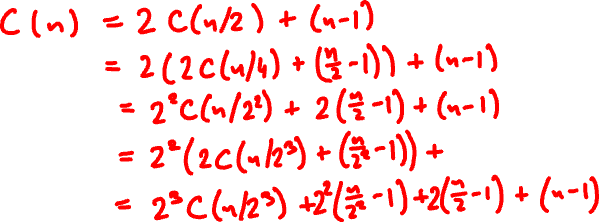 C(n) = 2 C(n/2) + (n-1)
= 2 (2C(n/4) + (n/2 -1)) + (n-1)
= 2²C(n/2²) + 2(n/2 -1) + (n-1)
= 2²(2C(n/2³) + (n/2² -1)) +
= 2³C(n/2³) + 2²(n/2² -1) + 2(n/2 -1) + (n-1)